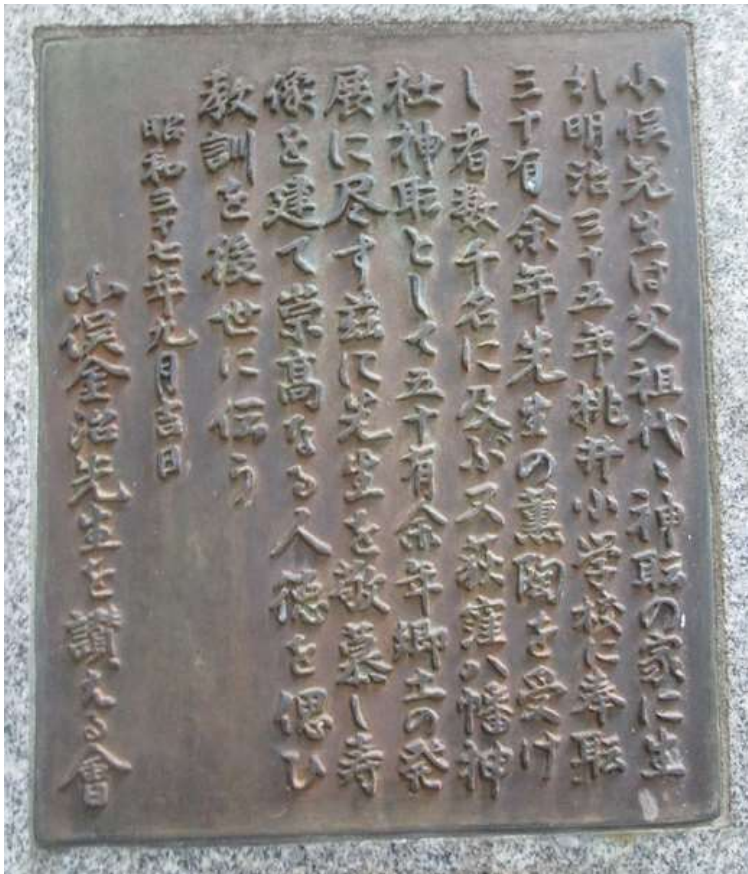 小俣先生は父祖代々神職の家に生
れ明治三十五年桃井小学校に奉職
三十有余年先生の薫陶を受け
し者数千名に及ぶ又荻窪八幡神
社神職として五十有余年郷土の発
展に尽す茲に先生を敬慕し寿
像を建て崇高なる人徳を偲ひ
教訓を後世に伝う
昭和三十七年九月吉日
小俣金治先生を讃える會